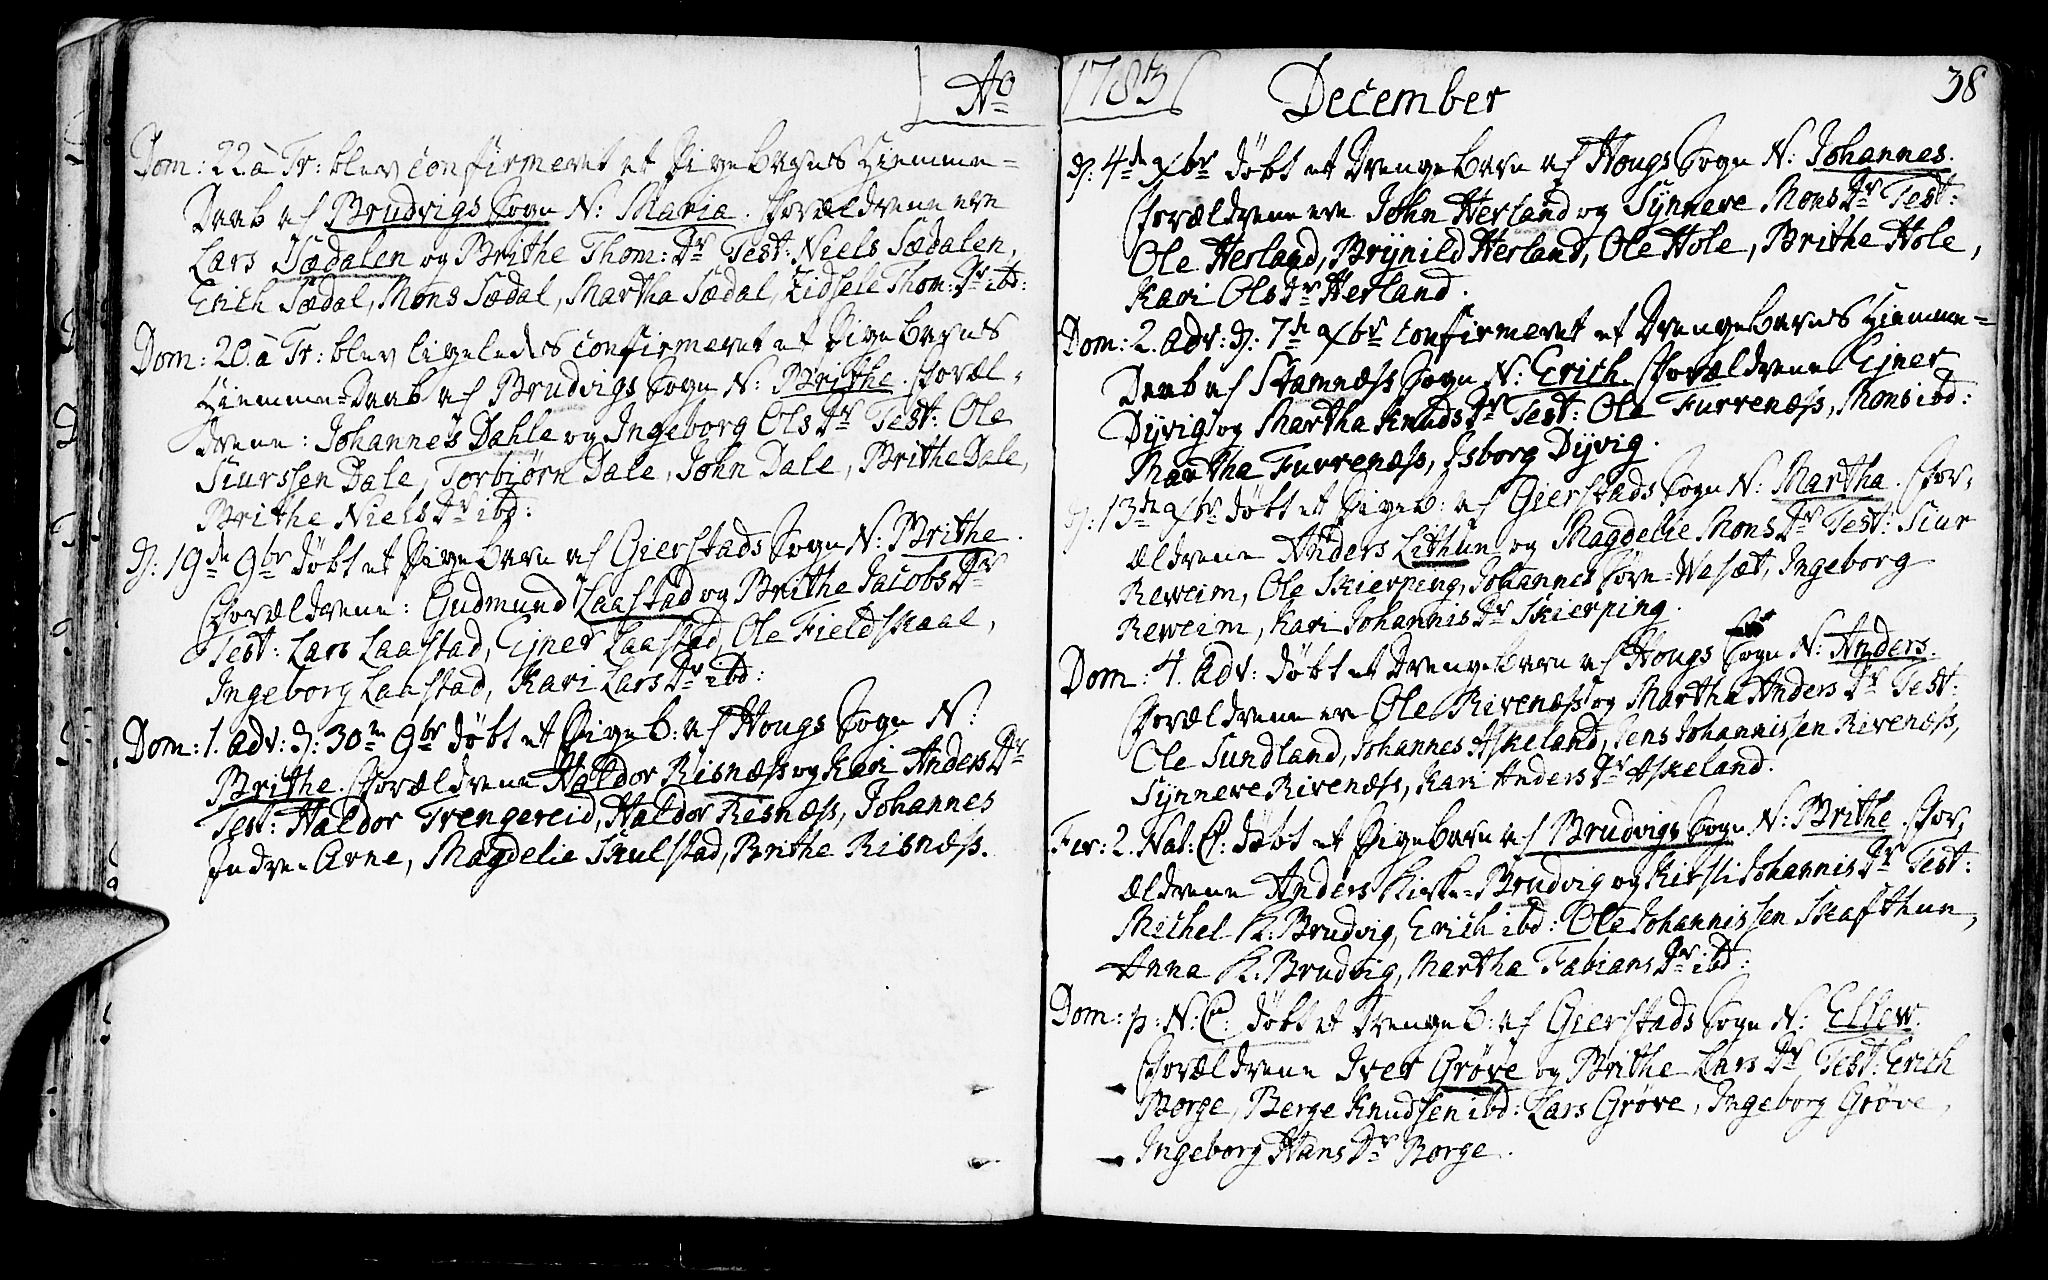 Ao
Dom: 22. à Tr: blev confirmeret et Pigebarns Hiemme=
Daab af Brudvigs Sogn N: Maria. Forældrene ere
Lars Sædalen og Brithe Thom: Dr Test: Niels Sædalen,
Erich Sædal, Mons Sædal, Martha Sædal, Zidsele Thom: Dr ibd:
Dom: 20. à Tr: blev ligeledes confirmeret et Pigebarns
Hiemme=Daab af Brudvigs Sogn N: Brithe. Foræl=
drene: Johannes Dahle og Ingeborg Ols Dr Test: Ole
Siurssen Dale, Torbiørn Dale, John Dale, Brithe Dale,
Brithe Niels Dr ibd:
D: 19de 9br døbt et Pigebarn af Gierstads Sogn N: Brithe.
Forældrene: Gudmund Laastad og Brithe Jacobs Dr
Test: Lars Laastad, Ejner Laastad, Ole Fieldskaal,
Ingeborg Laastad, Kari Lars Dr ibd:
Dom: 1. Adv: D: 30te 9br døbt et Pigeb: af Hougs Sogn N:
Brithe. Forældrene Haldor Risnæss og Kari Anders Dr
Test: Haldor Trengereid, Haldor Risnæss, Johannes
Indre Arne, Magdelie Skulstad, Brithe Risnæss.
1783
December
38
D: 4de Xbr døbt et Drengebarn af Hougs Sogn N: Johannes.
Forældrene ere John Herland og Synneve Mons Dr Test:
Ole Herland, Brÿnild Herland, Ole Hole, Brithe Hole,
Kari Ols Dr Herland.
Dom: 2. Adv: D: 7de Xbr confirmeret et Drengebarns Hiemme=
Daab af Stamnæss Sogn N: Erich. Forældrene Ejner
Dÿvig og Martha Knuds Dr Test: Ole Furrenæss, Mons ibd:
Martha Furrenæss, Isborg Dÿvig.
D: 13de Xbr døbt et Pigeb: af Gierstads Sogn N: Martha. For=
ældrene Anders Lithun og Magdelie Mons Dr Test: Siur
Reweim, Ole Skierping, Johannes Fore=Wasæt, Ingeborg
Reweim, Kari Johannis Dr Skierping.
Dom: 4. Adv: døbt et Drengebarn af Hougs Sogn N: Anders.
Forældrene ere Ole Rivenæss og Martha Anders Dr Test:
Ole Sundland, Johannes Askeland, Jens Johannissen Rivenæss,
Synneve Rivenæss, Kari Anders Dr Askeland.
Fer: 2. Nat: C: døbt et Pigebarn af Brudvigs Sogn N: Brithe. For=
ældrene Anders Kirke=Brudvig og Kirsti Johannis Dr Test:
Michel K: Brudvig, Erich ibd: Ole Johannissen Skafthun,
Anna K: Brudvig, Martha Fabians Dr ibd:
Dom: p: N: C: døbt et Drengeb: af Gierstads Sogn N: Ellew.
Forældrene Iver Grøve og Brithe Lars Dr Test: Erich
Borge, Berge Knudsen ibd: Lars Grøve, Ingeborg Grøve,
Ingeborg Hans Dr Borge.